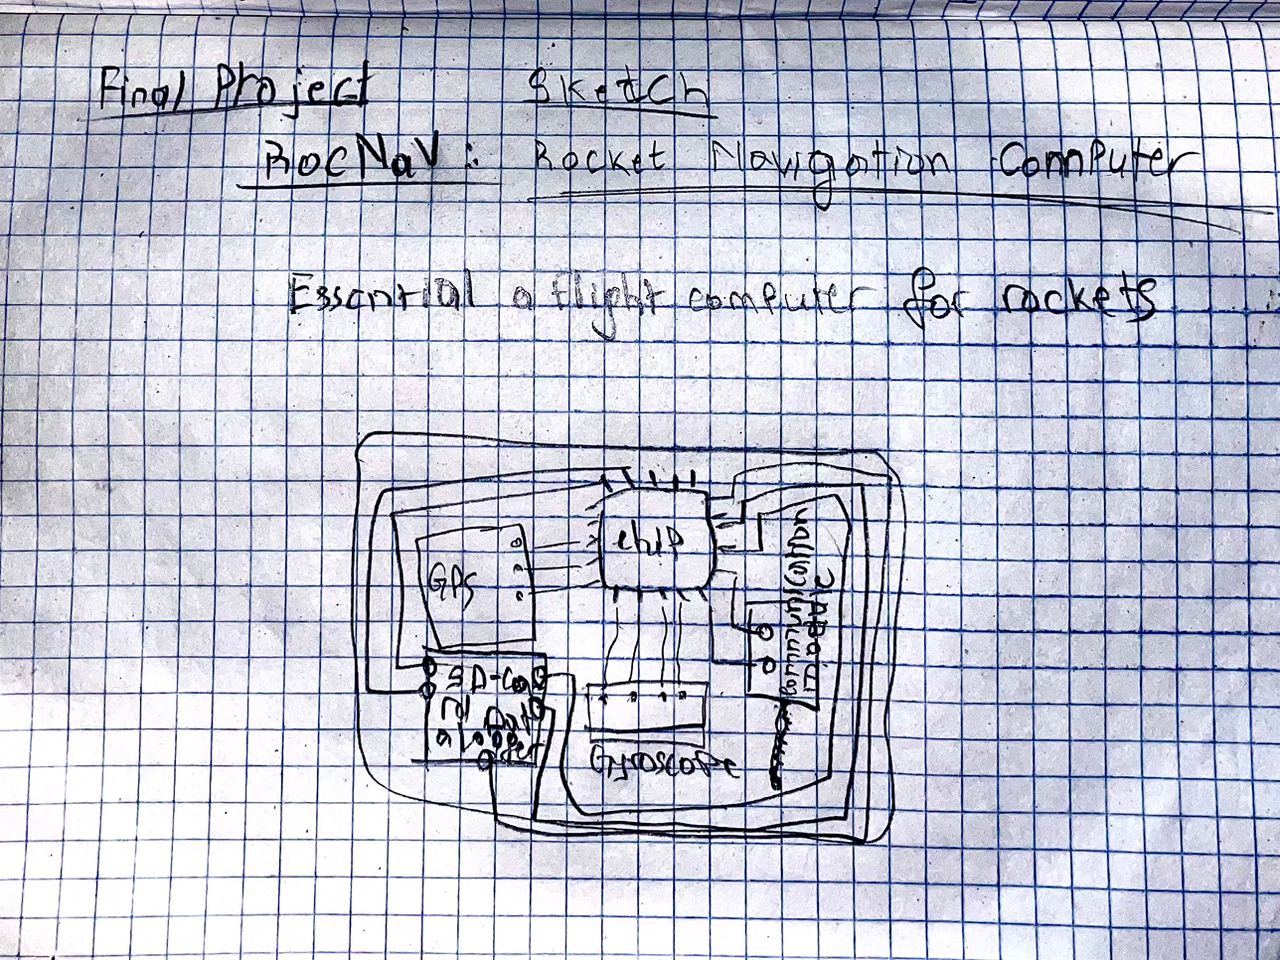 Final Project Sketch
RocNaV: Rocket Navigation Computer
Essential a flight computer for rockets
chip
GPS
SD-Ca
rd Dat
a Logg
er
Gyroscope